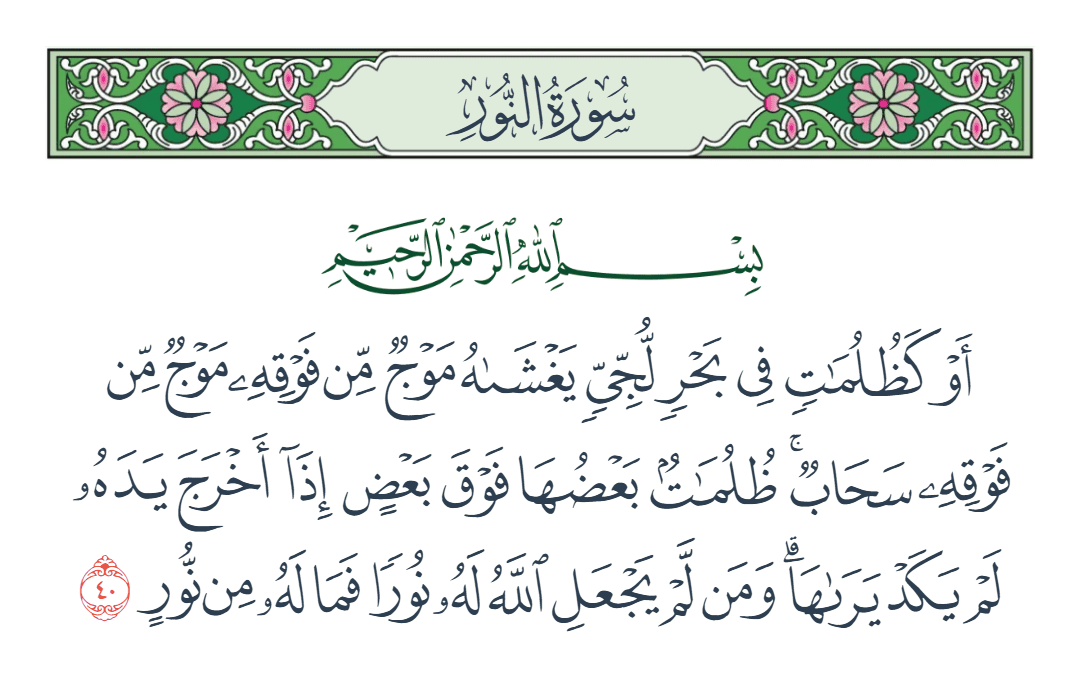 سُورَةُ النُّورِ
بِسْمِ ٱللَّهِ ٱلرَّحْمَٰنِ ٱلرَّحِيمِ
أَوْ كَظُلُمَٰتٍ فِى بَحْرٍ لُّجِّىٍّ يَغْشَىٰهُ مَوْجٌ مِّن فَوْقِهِۦ مَوْجٌ مِّن
فَوْقِهِۦ سَحَابٌ ۚ ظُلُمَٰتٌۢ بَعْضُهَا فَوْقَ بَعْضٍ إِذَآ أَخْرَجَ يَدَهُۥ
لَمْ يَكَدْ يَرَىٰهَا ۗ وَمَن لَّمْ يَجْعَلِ ٱللَّهُ لَهُۥ نُورًا فَمَا لَهُۥ مِن نُّورٍ ٤٠